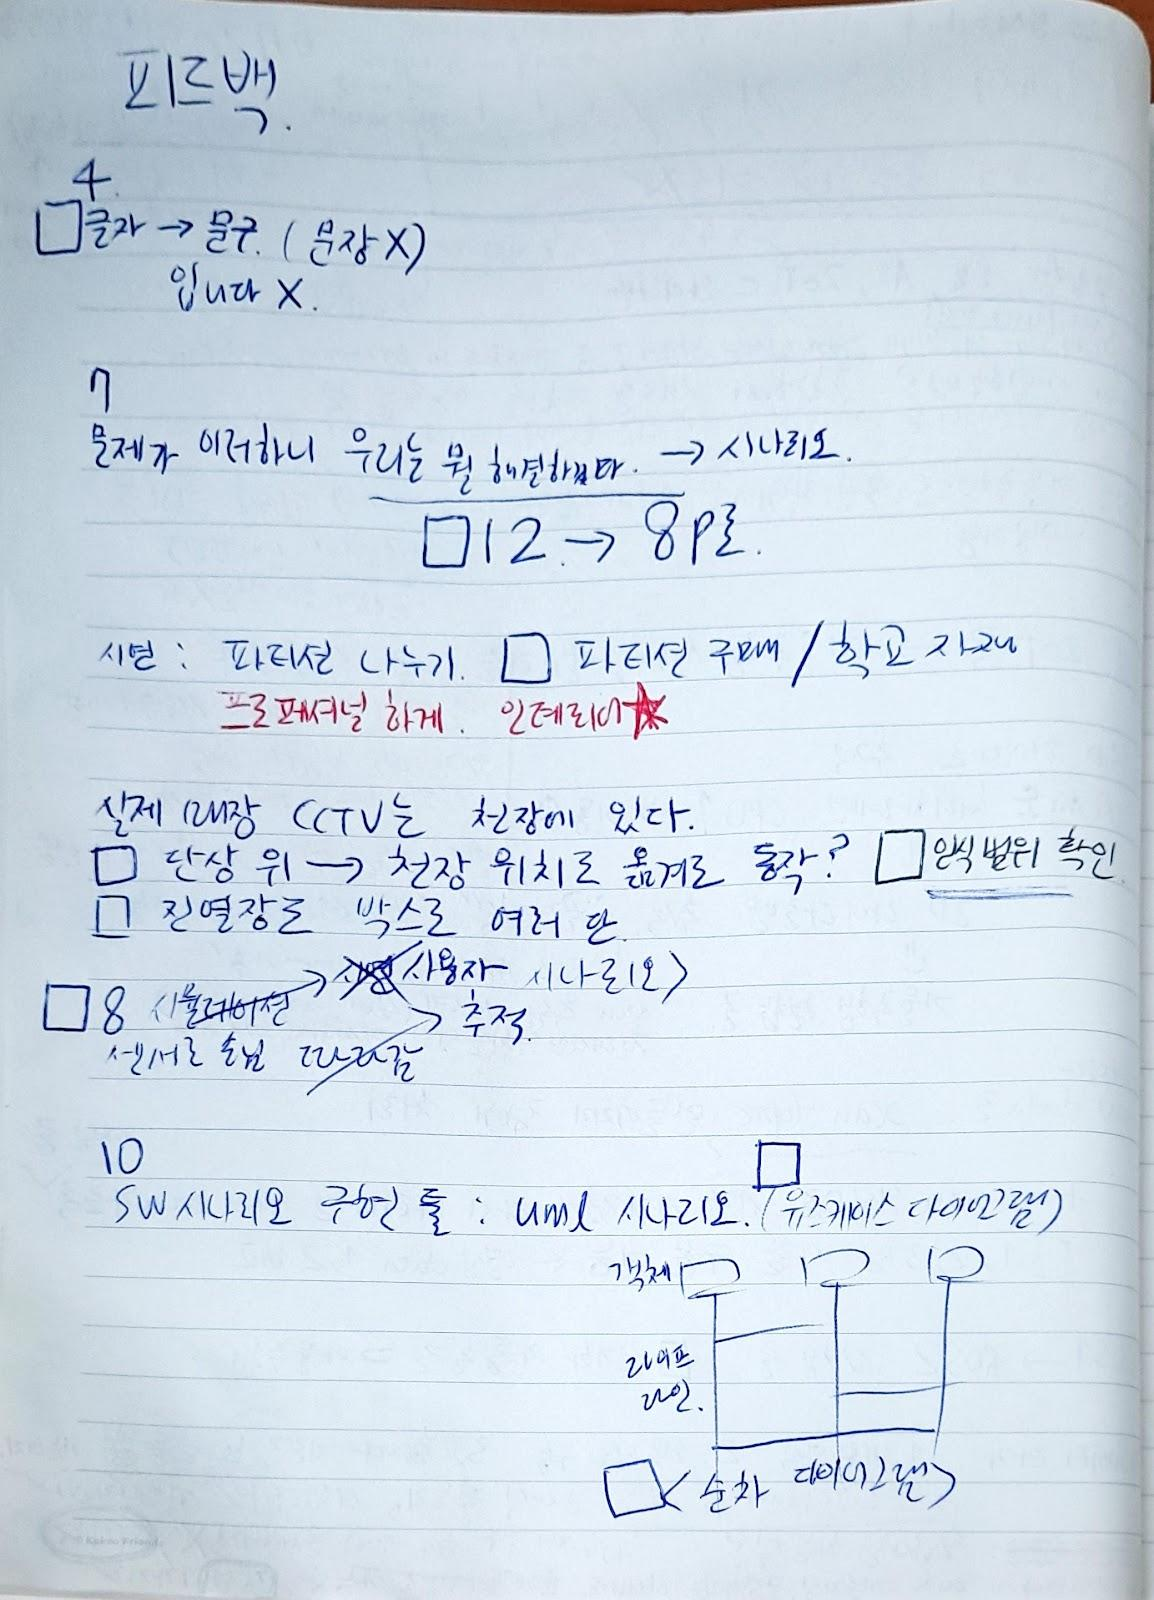 피드백.
4.
□글자 → 문구. (문장X)
입니다 X.
7
문제가 이러하니 우리는 뭘 해결하겠다. → 시나리오.
□12. → 8p로.
시연 : 파티션 나누기. □ 파티션 구매 / 학교 자재
프로패셔널 하게. 인테리어★
실제 매장 CCTV는 천장에 있다.
□ 단상 위 → 천장 위치로 옮겨도 동작? □인식 범위 확인.
□ 진열장도 박스로 여러 단.
□8 시뮬레이션 → 사용자 시나리오>
센서로 손님 따라감 → 추적.
10
SW시나리오 구현 툴 : uml 시나리오. □(유스케이스 다이어그램)
객체
라이프
라인.
□< 순차 다이어그램>
Kakao Friends